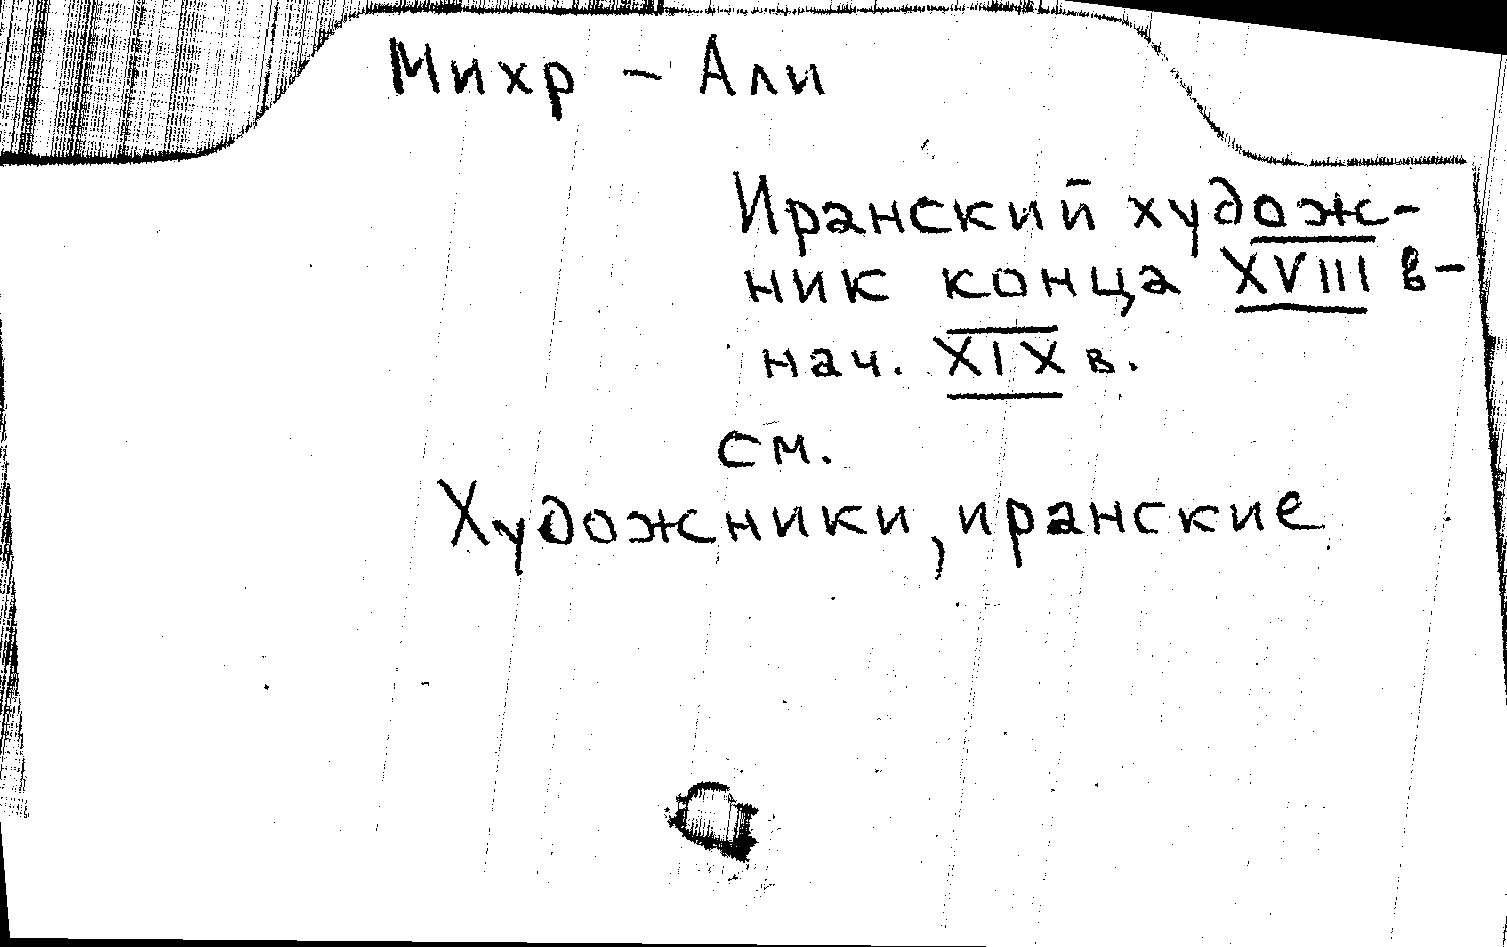 Михр - Али
Иранский худож-
ник конца XVIII в-
нач. XIX в.
см.
Художники, иранские